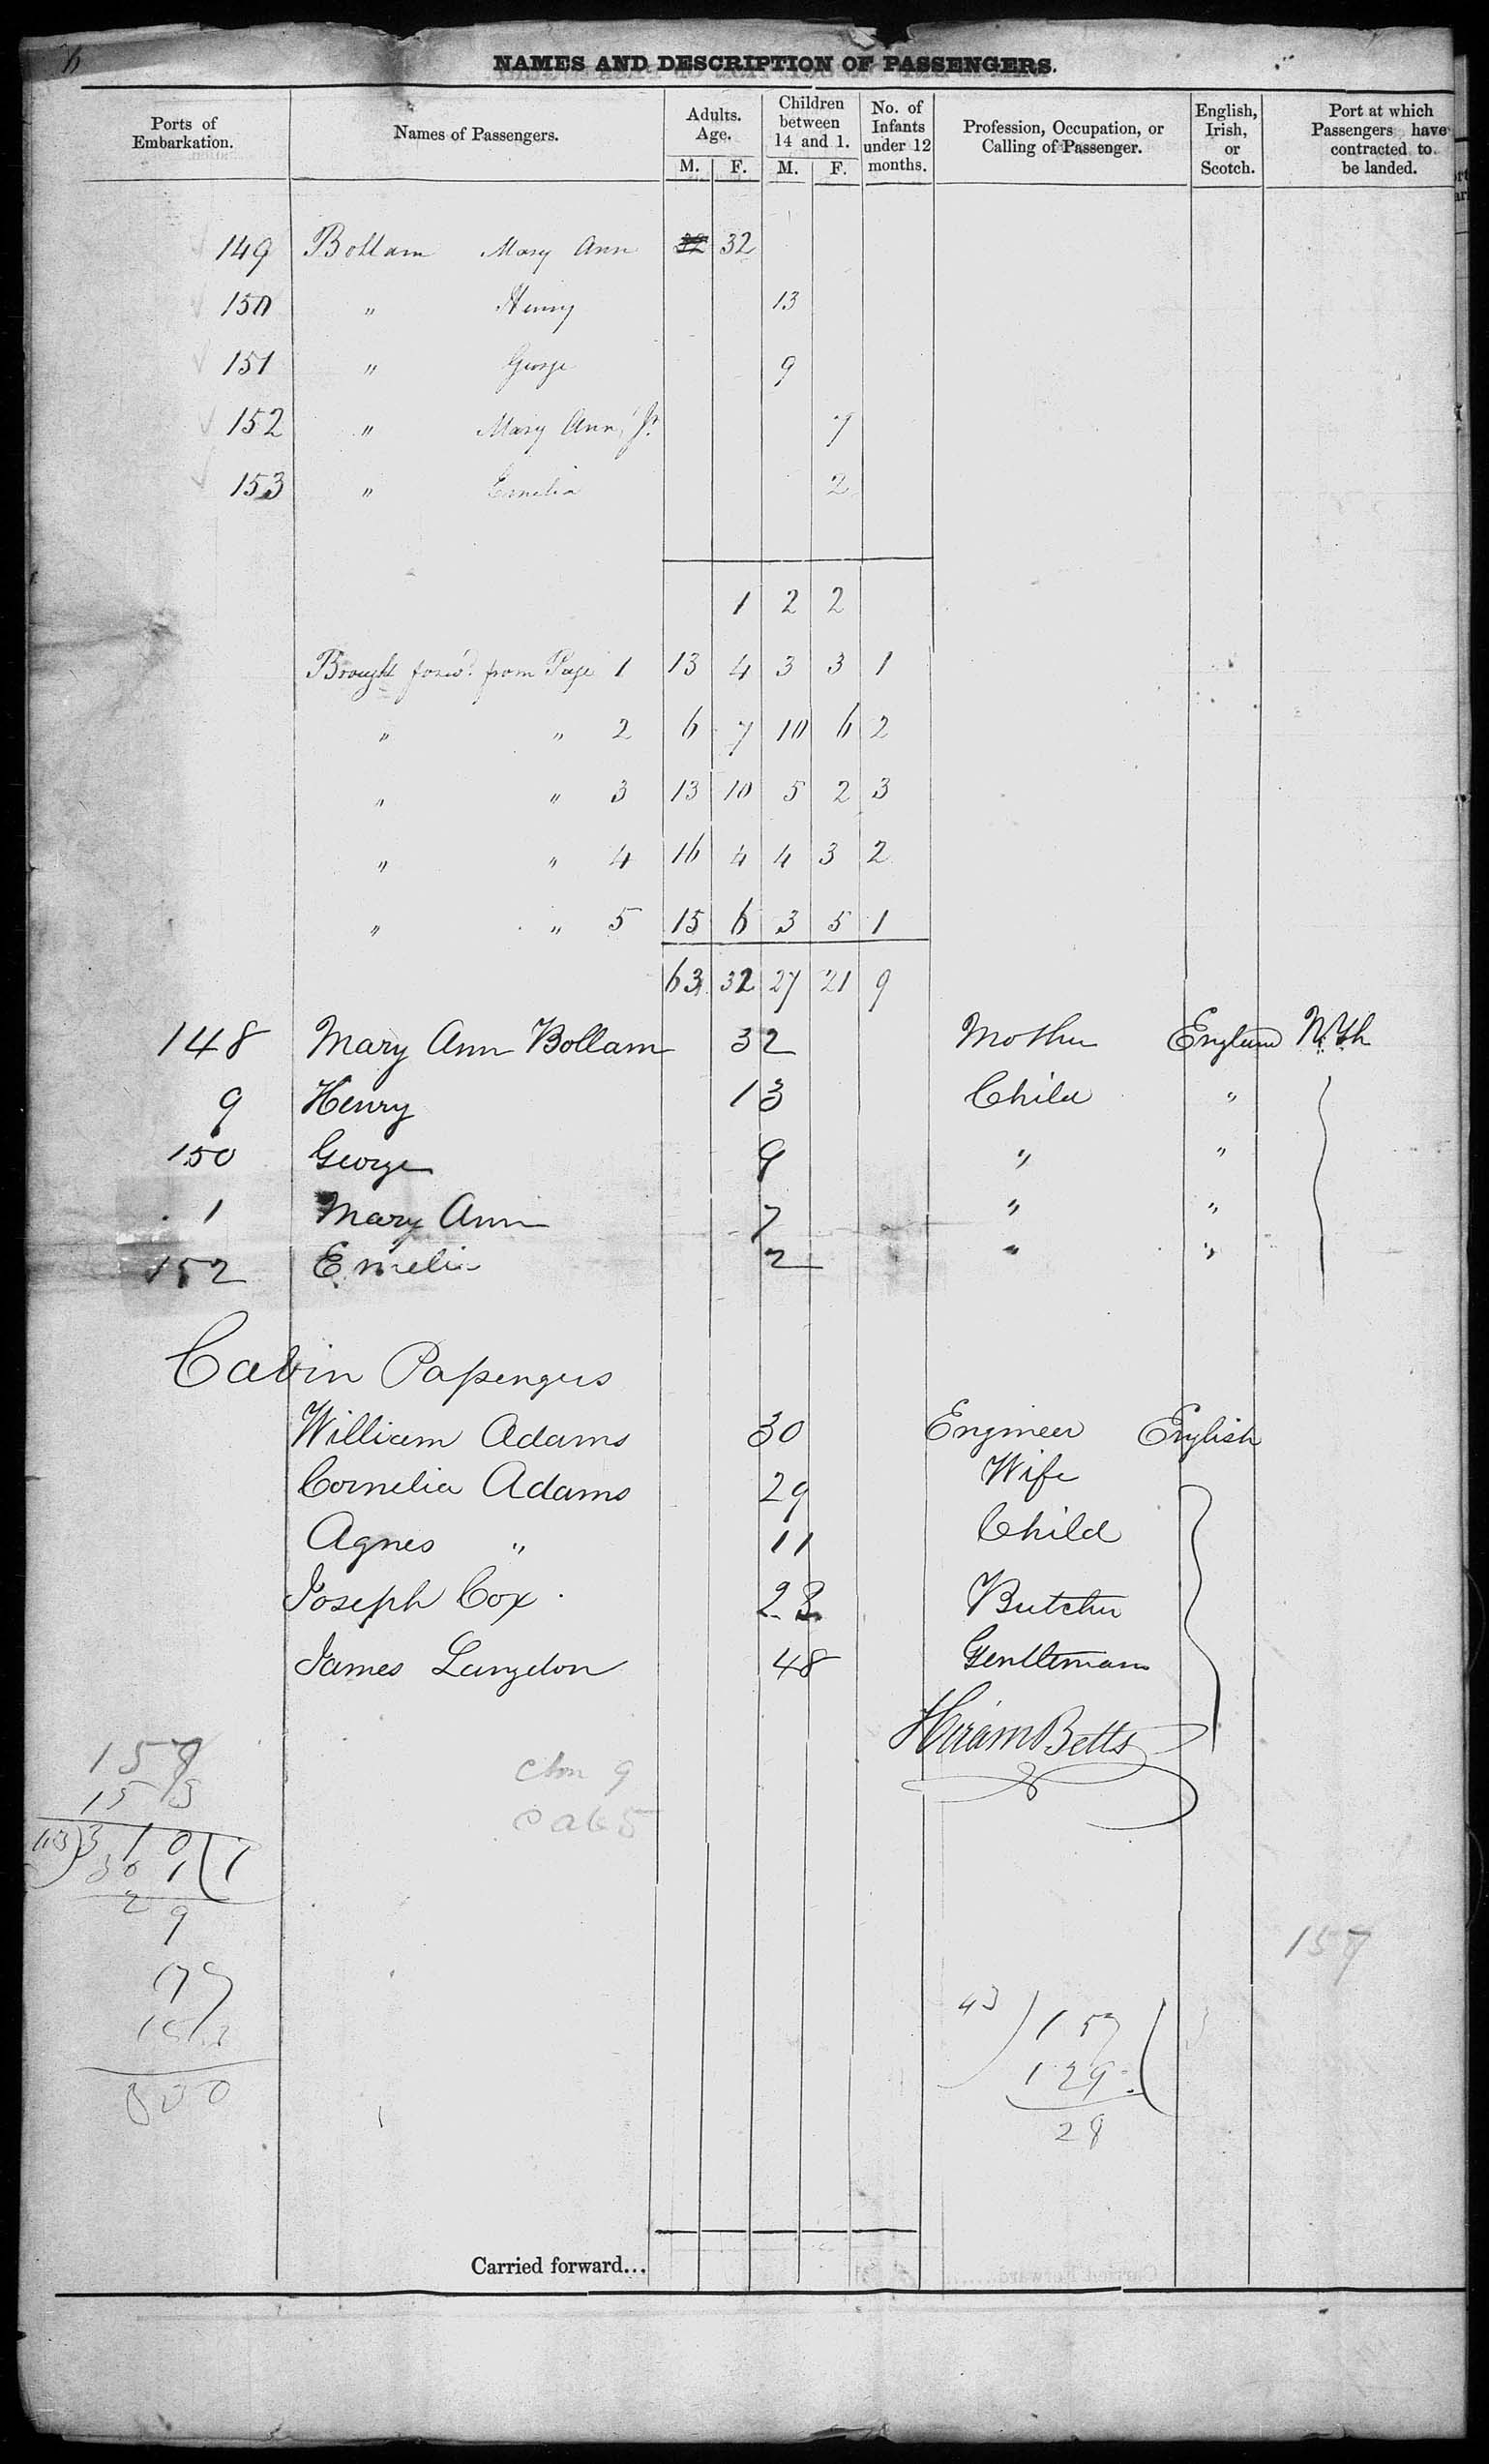 6
NAMES AND DESCRIPTION OF PASSENGERS.
Ports of Embarkation. Names of Passengers. Adults. Age. M. F. Children between 14 and 1. M. F. No. of Infants under 12 months. Profession, Occupation, or Calling of Passenger. English, Irish, or Scotch. Port at which Passengers have contracted to be landed.
149 Bollam Mary Ann 32 32
150 " Henry 13
151 " George 9
152 " Mary Ann Jr. 7
153 " Emelia 2
1 2 2
Brought forwd. from Page 1 13 4 3 3 1
" " 2 6 7 10 6 2
" " 3 13 10 5 2 3
" " 4 16 4 4 3 2
" " 5 15 6 3 5 1
63 32 27 21 9
148 Mary Ann Bollam 32 Mother England N. Yk
9 Henry 13 Child "
150 George 9 " "
1 Mary Ann 7 " "
152 Emelia 2 " "
Cabin Passengers
William Adams 30 Engineer English
Cornelia Adams 29 Wife
Agnes " 11 Child
Joseph Cox 28 Butcher
James Langdon 48 Gentleman
Hiram Betts
157
153
310
301 ( 1
29
9
5
157
43 ) 157 (
129
28
Carried forward...